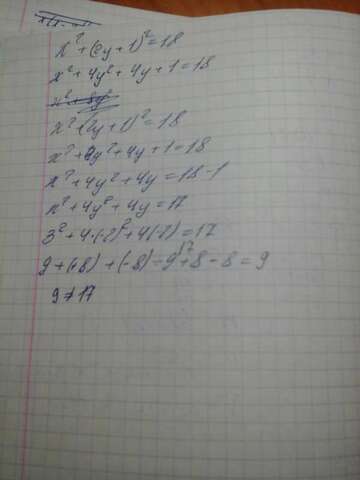 x²+(2y+1)²=18
x²+4y²+4y+1=18
x²+(2y+1)²=18
x²+4y²+4y+1=18
x²+4y²+4y=18-1
x²+4y²+4y=17
3²+4·(-2)²+4(-2)=17
9+(+8)+(-8)=9+8-8=9
9≠17